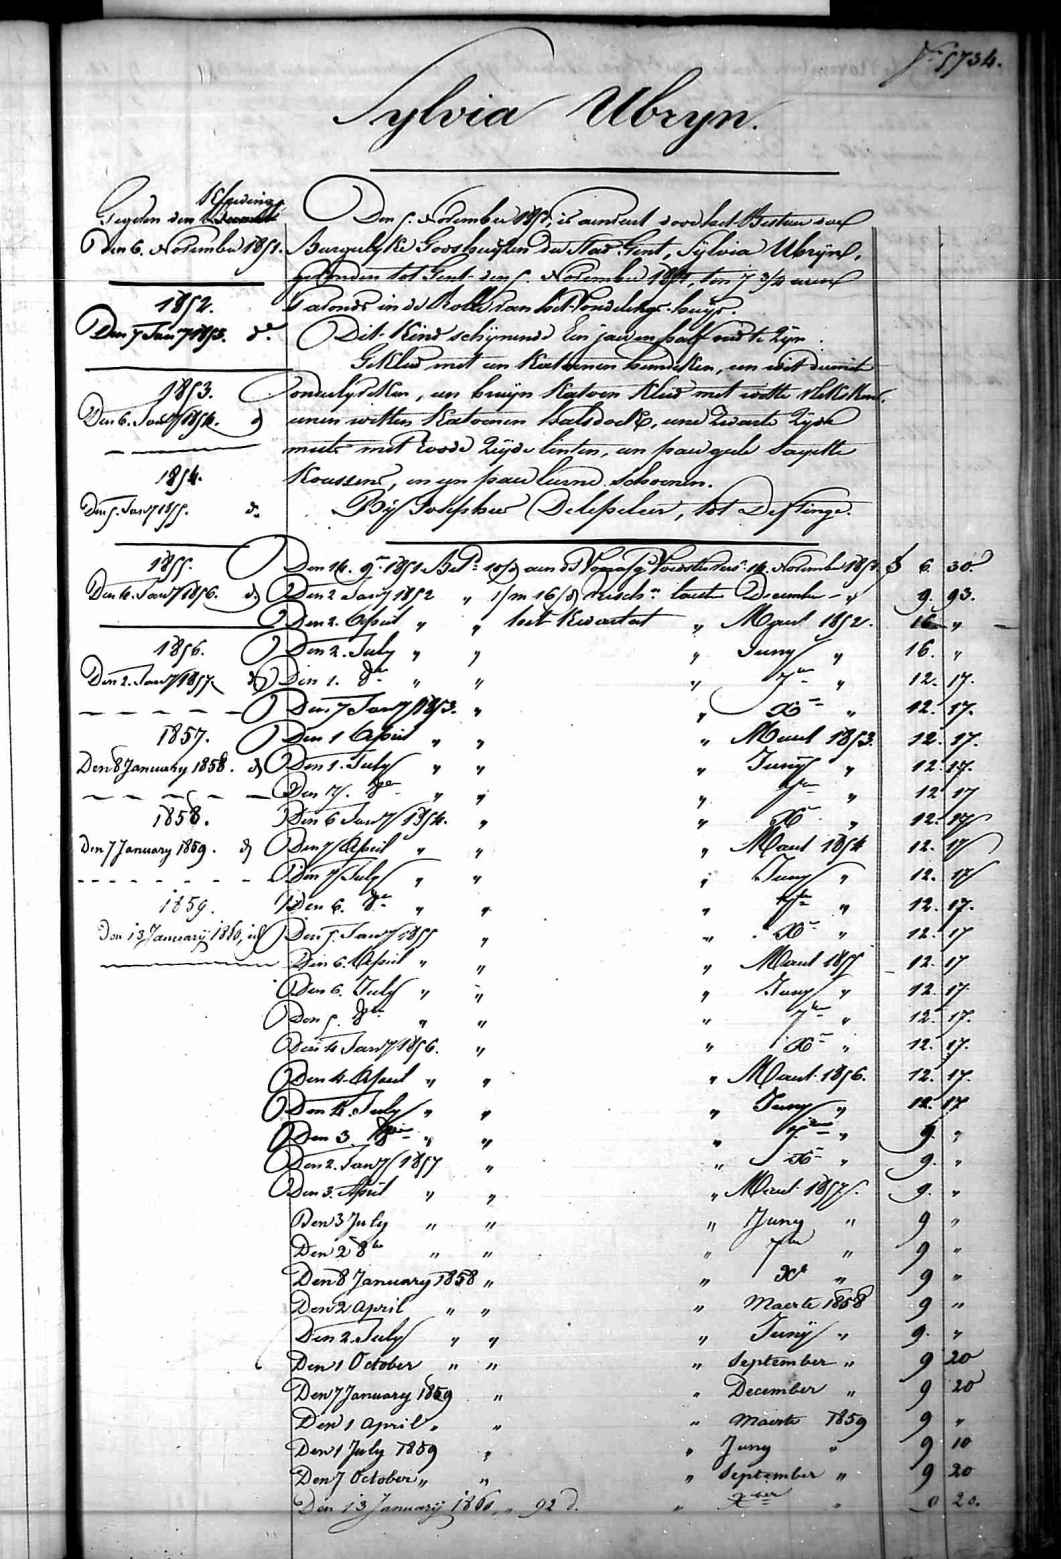 N° 5734.
Sylvia Ubryn.
Gezien den
Den 6. November 1851.
1852.
Den 7 Jany 1853. do
1853.
Den 6. Jany 1854. d
1854.
Den 5. Jany 1855. do
1855.
Den 4. Jany 1856. d
1856.
Den 2. Jany 1857. d
1857.
Den 8 January 1858. d
1858.
Den 7 January 1859. d
1859.
Den 13 January 1860, id
Den 5. November 1851, is aenveert door het Bestuer der
Burgerlyke Godshuijsen der Stad Gent, Sylvia Ubryn,
gevonden tot Gent den 5. November 1851, ten 7 3/4 uren
's avonds in de Rolle van het Vondelings-huijs.
Dit Kind schijnende Een jaer en half oud te Zijn.
Gekleed met een Katoenen hemdeken, een wit
een bruijn Katoen Kleed met witte
eenen witten Katoenen halsdoek, eene Zwarte Zyde
muts met roode Zeijde linten, een paer gele Sayette
Koussens, en een paer leirne Schoenen.
By Josephus Delepeleir, tot Deftinge.
Den 14. 9r 1851 aen de 14. November 1851. f 6. 30.
Den 2 Jany 1852 " December " 9. 93.
Den 2. April " " het Kwartael " Maert 1852. 16 "
Den 2. July " " " Juny " 16. "
Den 1. 8br " " " 7br " 12. 17.
Den 7 Jany 1853. " " Xr " 12. 17.
Den 1 April " " " Maert 1853. 12. 17.
Den 1. July " " " Juny " 12. 17.
Den 17. 8br " " " 7br " 12 17
Den 6 Jany 1854. " " Xr " 12. 17
Den 7 April " " " Maert 1854 12. 17
Den 7 July " " " Juny " 12. 17
Den 6. 8br " " " 7br " 12. 17.
Den 5. Jany 1855 " " Xr " 12. 17
Den 6. April " " " Maert 1855 12. 17
Den 6. July " " " Juny " 12. 17.
Den 5. 8br " " " 7br " 12. 17.
Den 4 Jany 1856. " " Xr " 12. 17.
Den 4. April " " " Maert 1856. 12. 17.
Den 4. July " " " Juny " 12. 17
Den 3. 8br " " " 7br " 9. "
Den 2. Jany 1857 " " Xr " 9. "
Den 3. April " " " Maert 1857. 9. "
Den 3 July " " " Juny " 9 "
Den 2 8br " " " 7br " 9 "
Den 8 January 1858 " " Xr " 9 "
Den 2 April " " " Maerte 1858 9 "
Den 2 July " " " Junÿ " 9. "
Den 1 October " " " September " 9 20
Den 7 January 1859 " " December " 9 20
Den 1 April " " " Maerte 1859 9 "
Den 1 July 1859 " " Juny " 9 10
Den 7 October " " " September " 9 20
Den 13 Januarÿ 1860, " 92 d. " Xber " 9 20.